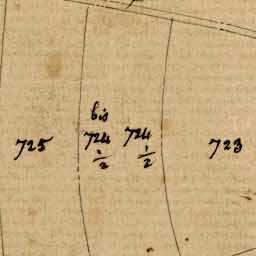 725
bis
724 1/2
724 1/2
723